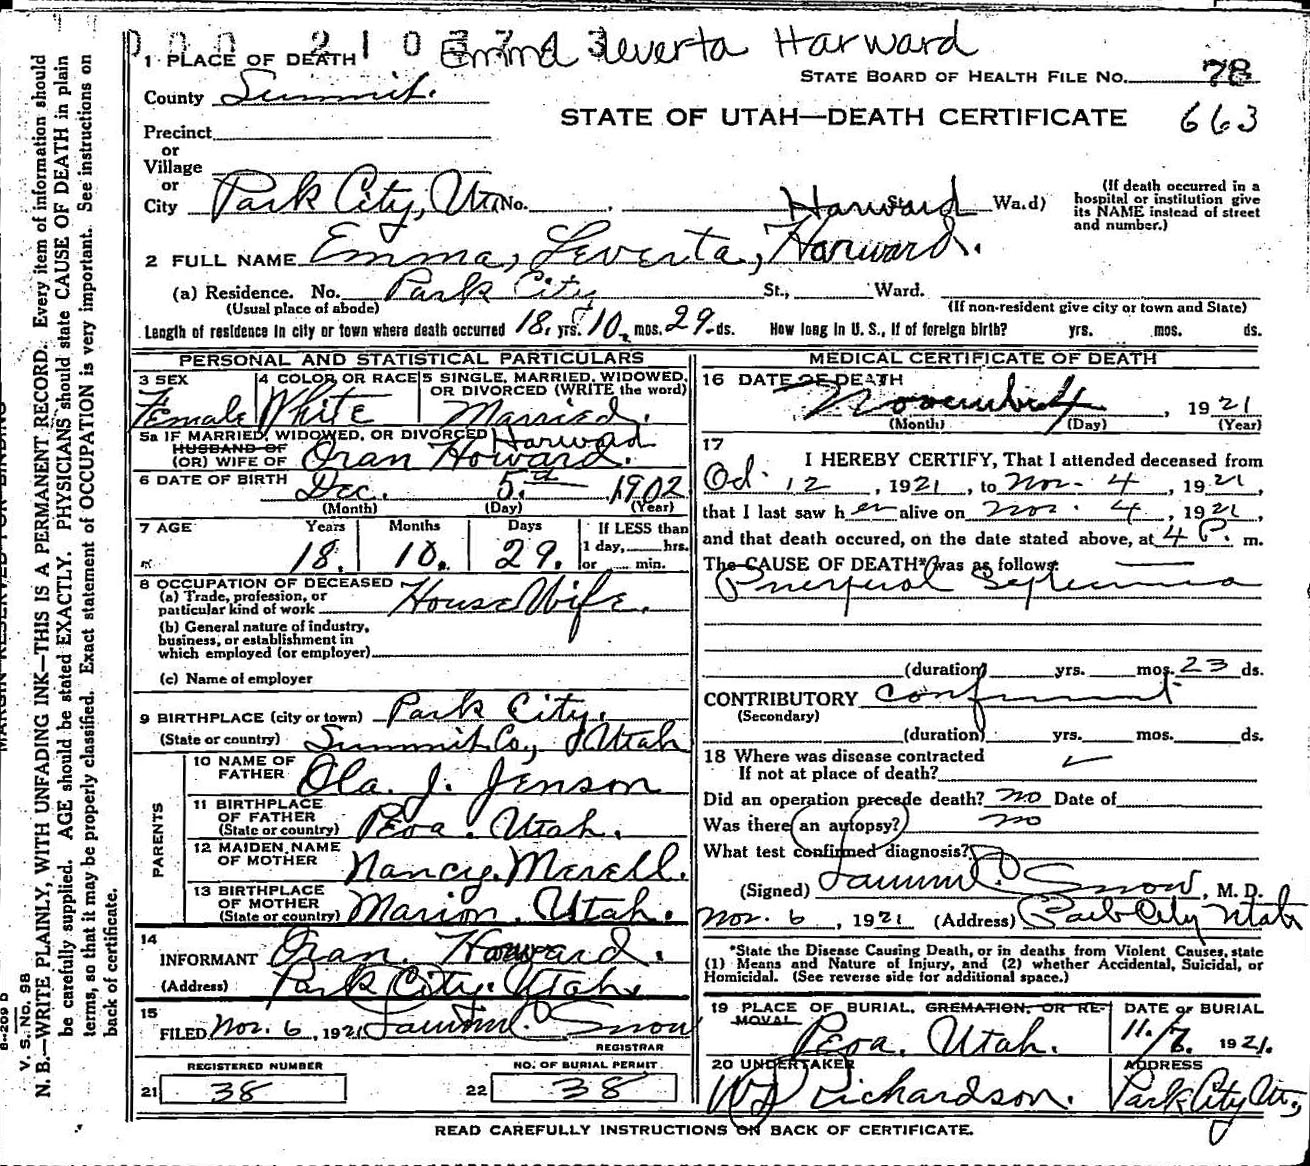 Emma Leverta Harward
1 PLACE OF DEATH
STATE BOARD OF HEALTH FILE NO. 78
County Summit.
STATE OF UTAH—DEATH CERTIFICATE 663
Precinct
or
Village
or
City Park City, Uta No. Harward St. Ward)
(If death occurred in a hospital or institution give its NAME instead of street and number.)
2 FULL NAME Emma, Leverta, Harward.
(a) Residence. No. Park City St., Ward.
(Usual place of abode) (If non-resident give city or town and State)
Length of residence in city or town where death occurred 18. yrs. 10. mos. 29. ds. How long in U. S., if of foreign birth? yrs. mos. ds.
PERSONAL AND STATISTICAL PARTICULARS
3 SEX Female
4 COLOR OR RACE White
5 SINGLE, MARRIED, WIDOWED, OR DIVORCED (WRITE the word) Married.
5a IF MARRIED, WIDOWED, OR DIVORCED Harward
HUSBAND OF
(OR) WIFE OF Oran Howard.
6 DATE OF BIRTH Dec. 5th 1902
(Month) (Day) (Year)
7 AGE Years Months Days If LESS than
18. 10. 29. 1 day, hrs.
or min.
8 OCCUPATION OF DECEASED
(a) Trade, profession, or
particular kind of work House Wife.
(b) General nature of industry,
business, or establishment in
which employed (or employer)
(c) Name of employer
9 BIRTHPLACE (city or town) Park City.
(State or country) Summit Co., Utah
PARENTS
10 NAME OF FATHER Ola. J. Jenson
11 BIRTHPLACE OF FATHER (State or country) Peoa. Utah.
12 MAIDEN NAME OF MOTHER Nancy. Merell.
13 BIRTHPLACE OF MOTHER (State or country) Marion. Utah.
14
INFORMANT Oran. Harward.
(Address) Park City. Utah.
15
FILED Nov. 6, 1921 Snow
REGISTRAR
REGISTERED NUMBER NO. OF BURIAL PERMIT
21 38 22 38
MEDICAL CERTIFICATE OF DEATH
16 DATE OF DEATH
November 4, 1921
(Month) (Day) (Year)
17
I HEREBY CERTIFY, That I attended deceased from
Oct. 12, 1921, to Nov. 4, 1921,
that I last saw h er alive on Nov. 4, 1921,
and that death occured, on the date stated above, at 4 P. m.
The CAUSE OF DEATH* was as follows:
Puerperal Septicemia
(duration) yrs. mos. 23 ds.
CONTRIBUTORY confinement
(Secondary)
(duration) yrs. mos. ds.
18 Where was disease contracted
If not at place of death?
Did an operation precede death? no Date of
Was there an autopsy? no
What test confirmed diagnosis?
(Signed) Snow, M. D.
Nov. 6, 1921 (Address) Park City Utah
*State the Disease Causing Death, or in deaths from Violent Causes, state
(1) Means and Nature of Injury, and (2) whether Accidental, Suicidal, or
Homicidal. (See reverse side for additional space.)
19 PLACE OF BURIAL, CREMATION, OR REMOVAL DATE OF BURIAL
Peoa. Utah. 11/7. 1921.
20 UNDERTAKER ADDRESS
W Richardson. Park City Ut,
READ CAREFULLY INSTRUCTIONS ON BACK OF CERTIFICATE.
MARGIN RESERVED FOR BINDING
V. S. No. 98
N. B.—WRITE PLAINLY, WITH UNFADING INK—THIS IS A PERMANENT RECORD. Every item of information should
be carefully supplied. AGE should be stated EXACTLY. PHYSICIANS should state CAUSE OF DEATH in plain
terms, so that it may be properly classified. Exact statement of OCCUPATION is very important. See instructions on
back of certificate.